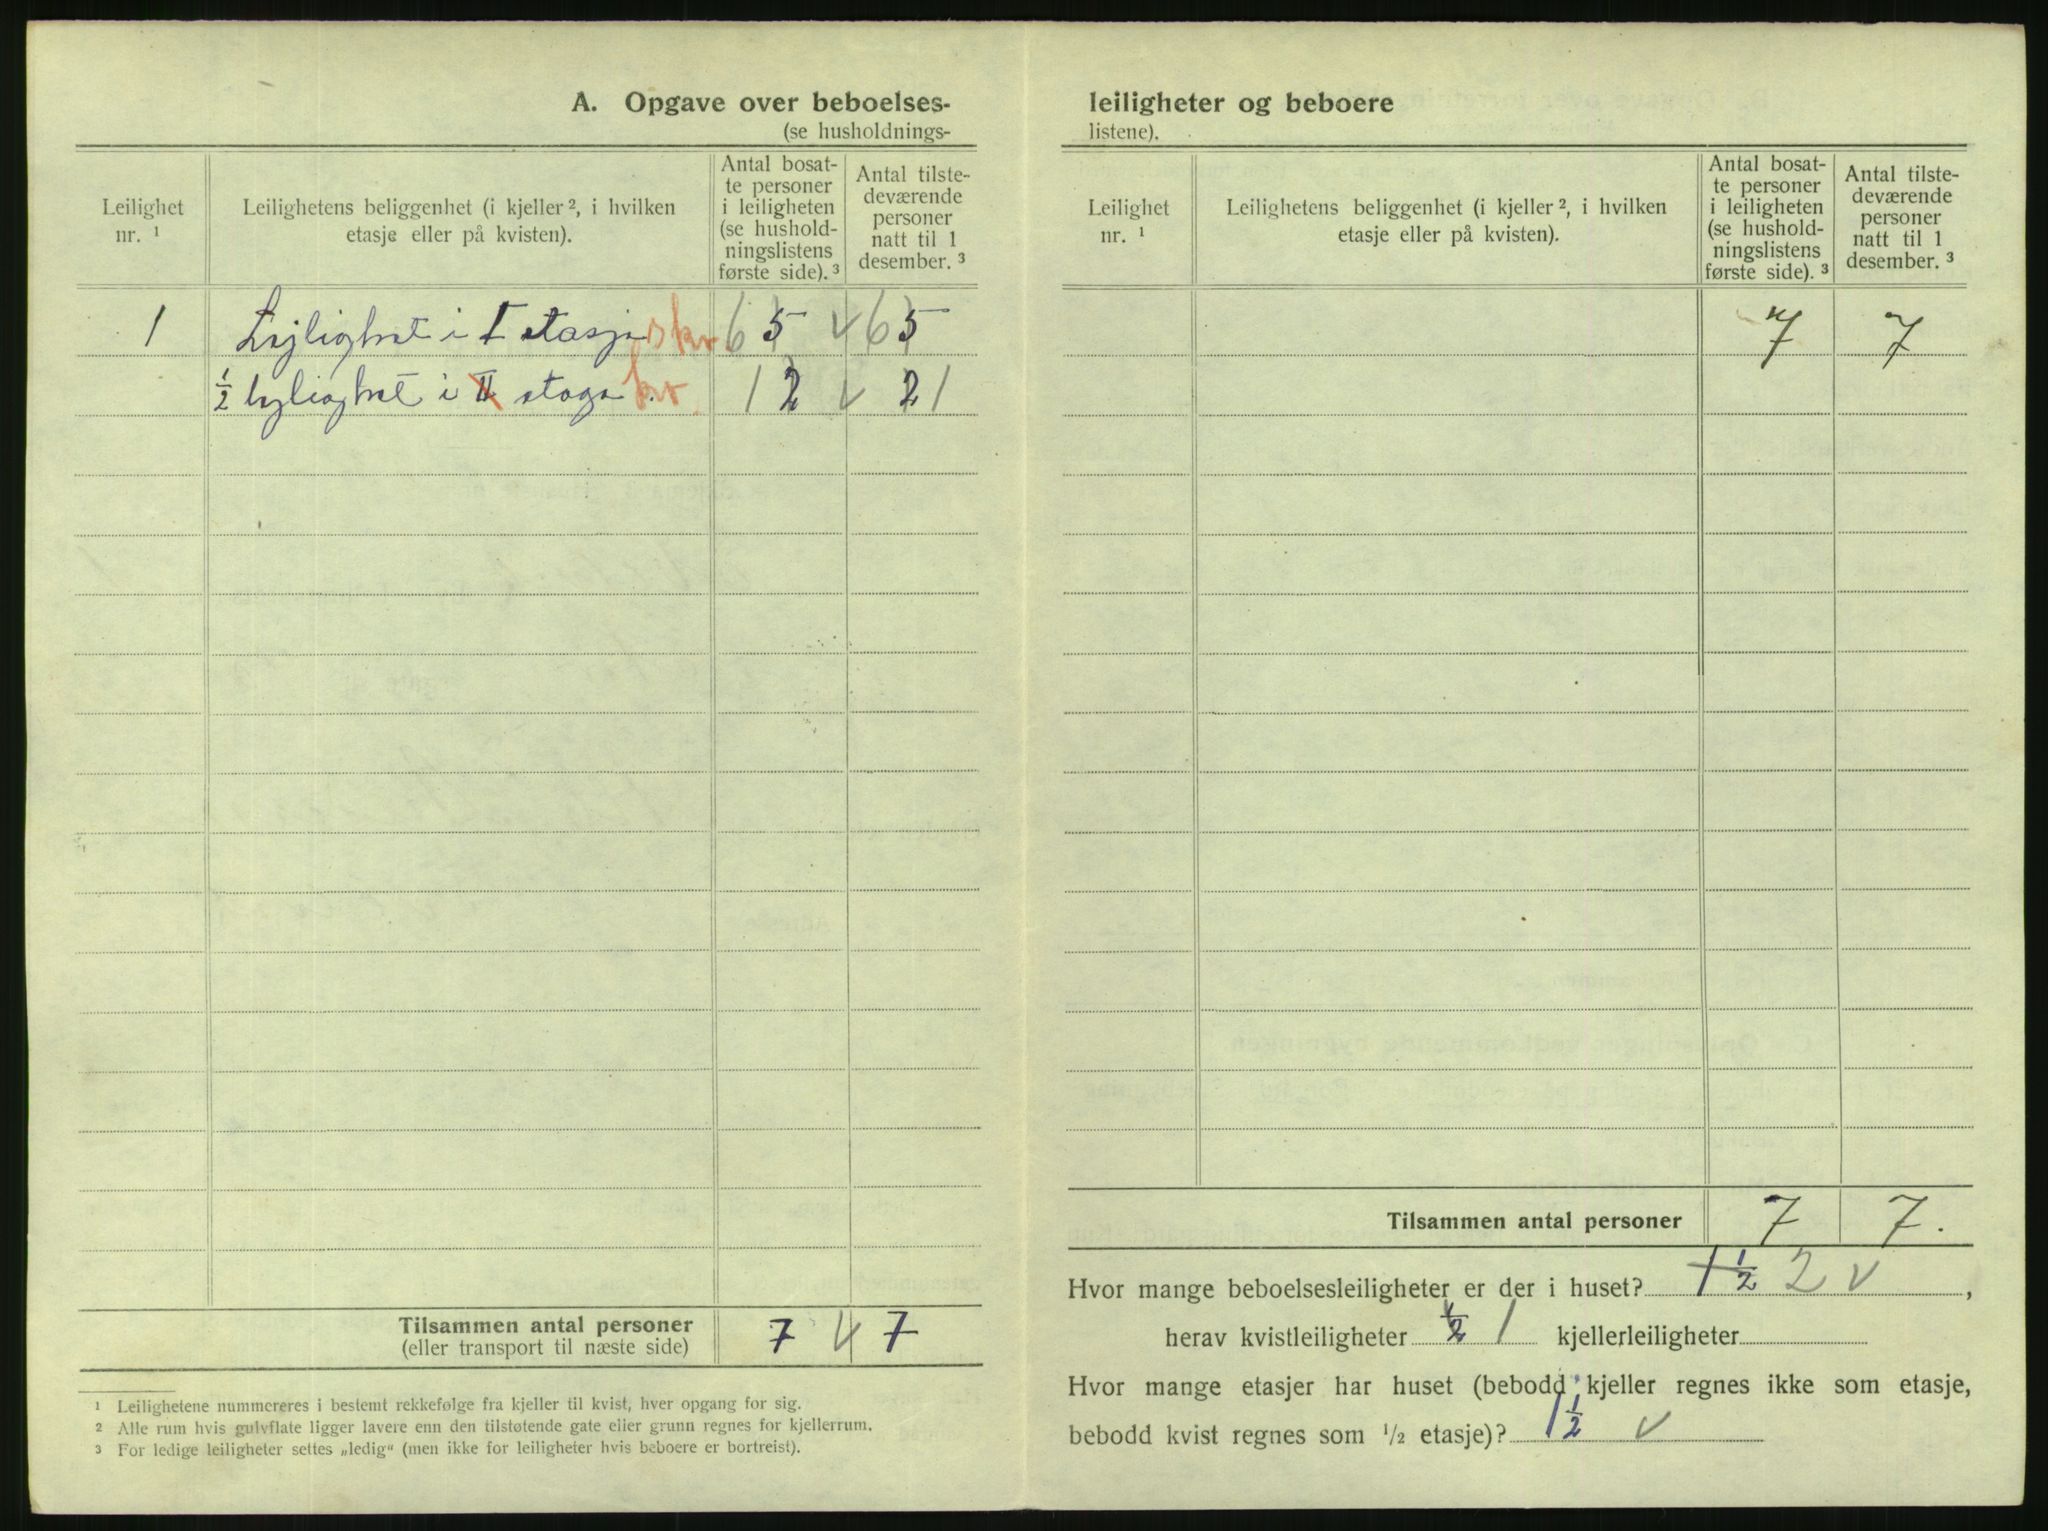 A. Opgave over beboelses-
(se husholdnings-
Leilighet
nr. ¹
Leilighetens beliggenhet (i kjeller ², i hvilken
etasje eller på kvisten).
Antal bosat-
te personer
i leiligheten
(se hushold-
ningslistens
første side). ³
Antal tilste-
deværende
personer
natt til 1
desember. ³
1 Lejlighet i I etasje skr 6 5 v 6 5
½ lejlighet i II etage kv. 1 2 v 2 1
Tilsammen antal personer
(eller transport til næste side)
7 v 7
¹ Leilighetene nummereres i bestemt rekkefølge fra kjeller til kvist, hver opgang for sig.
² Alle rum hvis gulvflate ligger lavere enn den tilstøtende gate eller grunn regnes for kjellerrum.
³ For ledige leiligheter settes „ledig“ (men ikke for leiligheter hvis beboere er bortreist).
leiligheter og beboere
listene).
Leilighet
nr. ¹
Leilighetens beliggenhet (i kjeller ², i hvilken
etasje eller på kvisten).
Antal bosat-
te personer
i leiligheten
(se hushold-
ningslistens
første side). ³
Antal tilste-
deværende
personer
natt til 1
desember. ³
7 7
Tilsammen antal personer 7 7.
Hvor mange beboelsesleiligheter er der i huset? 1 ½ 2 v,
herav kvistleiligheter ½ 1 kjellerleiligheter
Hvor mange etasjer har huset (bebodd kjeller regnes ikke som etasje,
bebodd kvist regnes som ½ etasje)? 1 ½ v